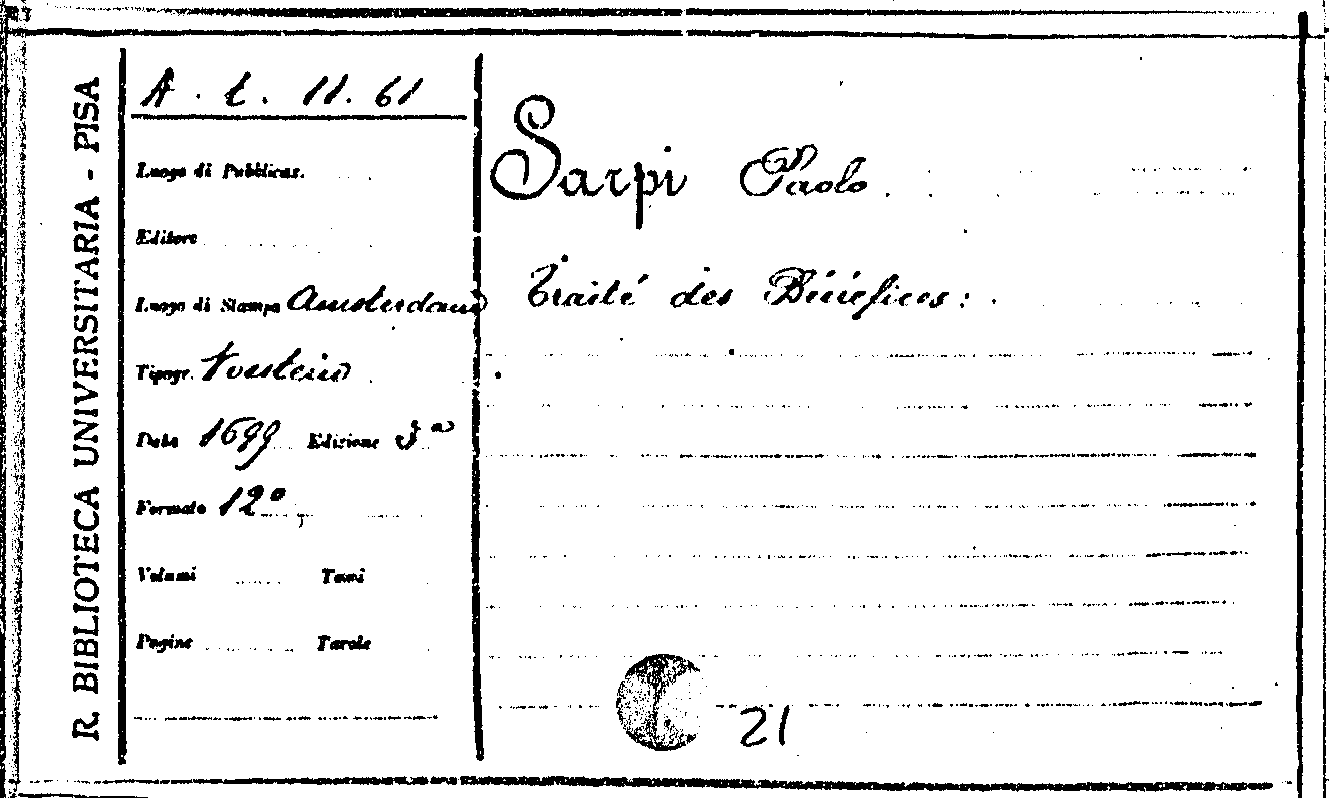 R. BIBLIOTECA UNIVERSITARIA - PISA
A. t. 11. 61
Luogo di Pubblicaz.
Editore
Luogo di Stampa Amsterdam
Tipogr.
Data 1699 Edizione 3ª
Formato 12º
Volumi Tomi
Pagine Tavole
Sarpi Paolo.
Traité des Bénéfices:
21